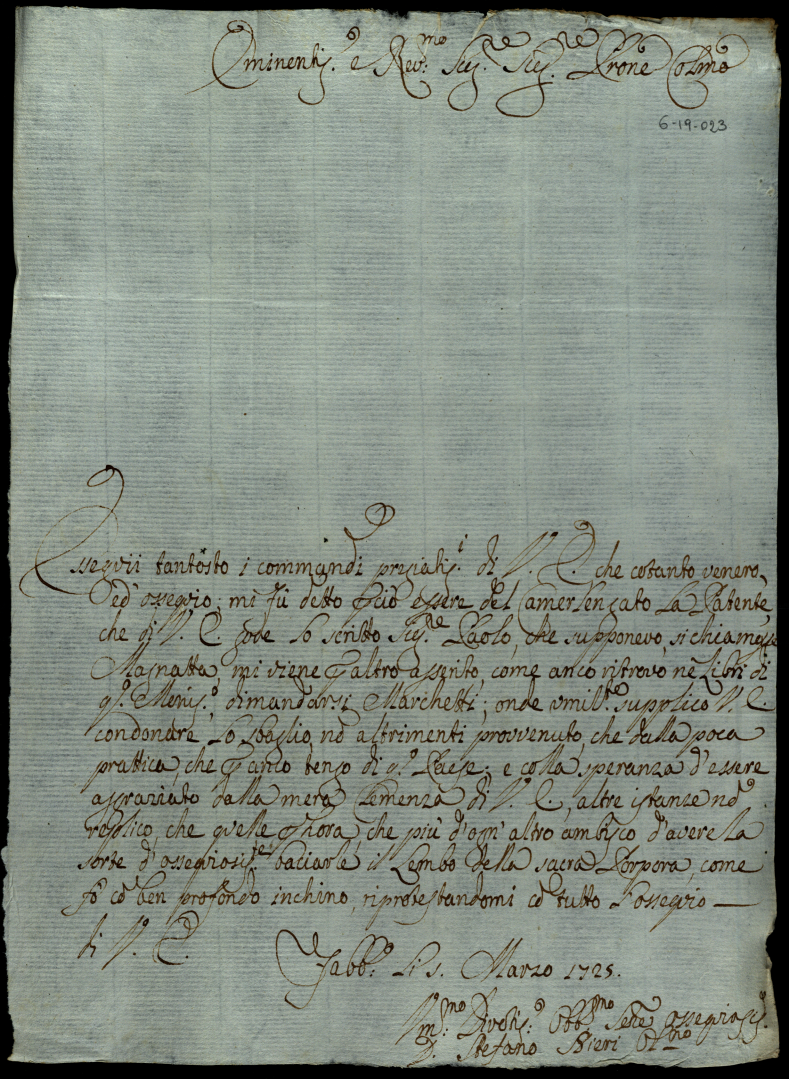 Eminentis.ᵉ e Rev.ᵐᵒ Sig.ʳᵉ Sig.ʳᵉ Prone Colmo
6-19-023
Esseqvii tantosto i commandi pregiatis.ⁱ di V. E. che cotanto venero,
ed' osseqvio; mi fù detto pciò essere del Camerlengato La Patente,
che di V. E. gode Lo scritto Sig.ʳᵉ Paolo, che supponevo, si chiamasse
Magnatta, mi viene p altro asserito, come anco ritrovo ne Libri di
q.º Minis.º dimandarsi Marchetti; onde vmilt.ᵉ supplico V. E.
condonare Lo sbaglio, nō altrimenti provvenuto, che dalla poca
prattica, che p anco tengo di q.º Paese; e colla speranza d'essere
aggraziato dalla mera Clemenza di V. E., altre istanze nō
replico, che qvelle p hora, che più d'ogn' altro ambisco d'avere La
sorte d'osseqviosis.ᵗᵉ baciarle il Lembo della sacra Porpora, come
fò cō ben profondo inchino, riprotestandomi cō tutto L'osseqvio —
di V. E.
Gabb.º Li 1. Marzo 1725.
Vm.ᵐᵒ Divotis.º Obb.ᵐᵒ Serv.ᵉ osseqviosis.º
D. Stefano Bieri